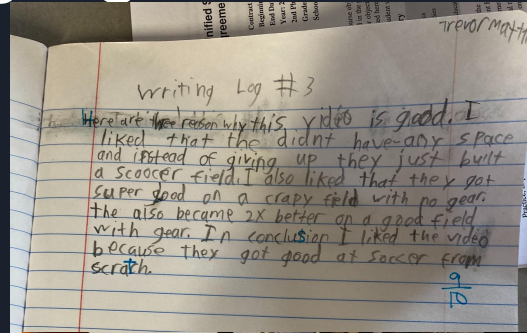 nified S
reeme
Contract
Beginni
End Da
Year:
2nd Ph
Grade
Schoo
Trevor
Writing Log #3
Here are three reason why this video is good. I
liked that the didnt have any space
and instead of giving up they just built
a scoocer field. I also liked that they got
super good on a crapy field with no gear.
the also became 2X better on a good field
with gear. In conclusion I liked the video
because they got good at soccer from
scratch.
9
10